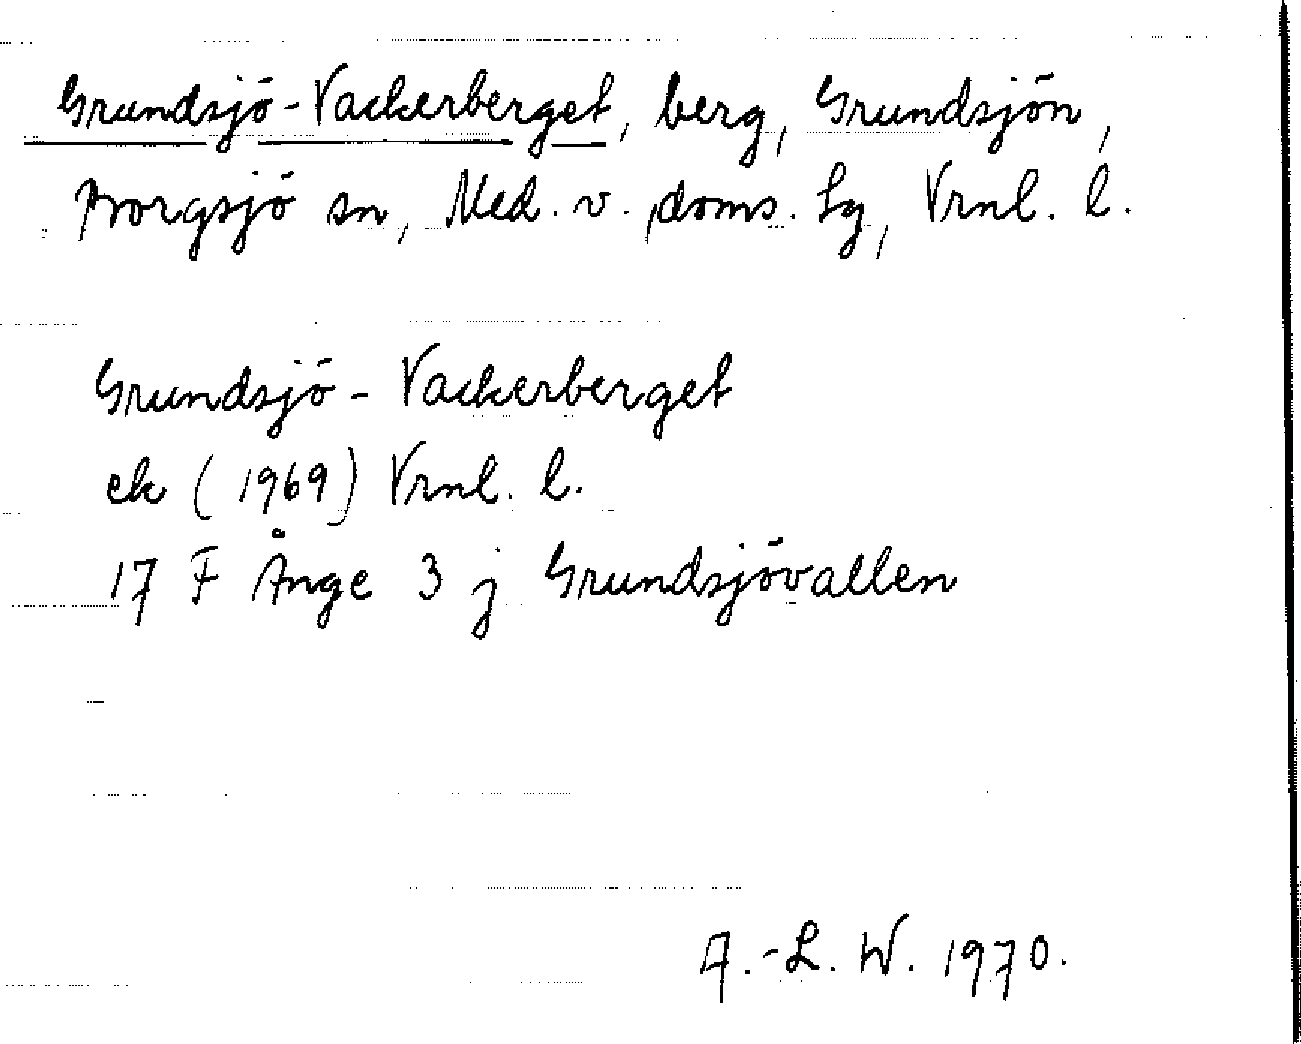 Grundsjö-Vackerberget, berg, Grundsjön,
Borgsjö sn, Med. v. doms. tg, Vrnl. l.
Grundsjö-Vackerberget
ek (1969) Vrnl. l.
17 F Ånge 3 j Grundsjövallen
A.-L. W. 1970.